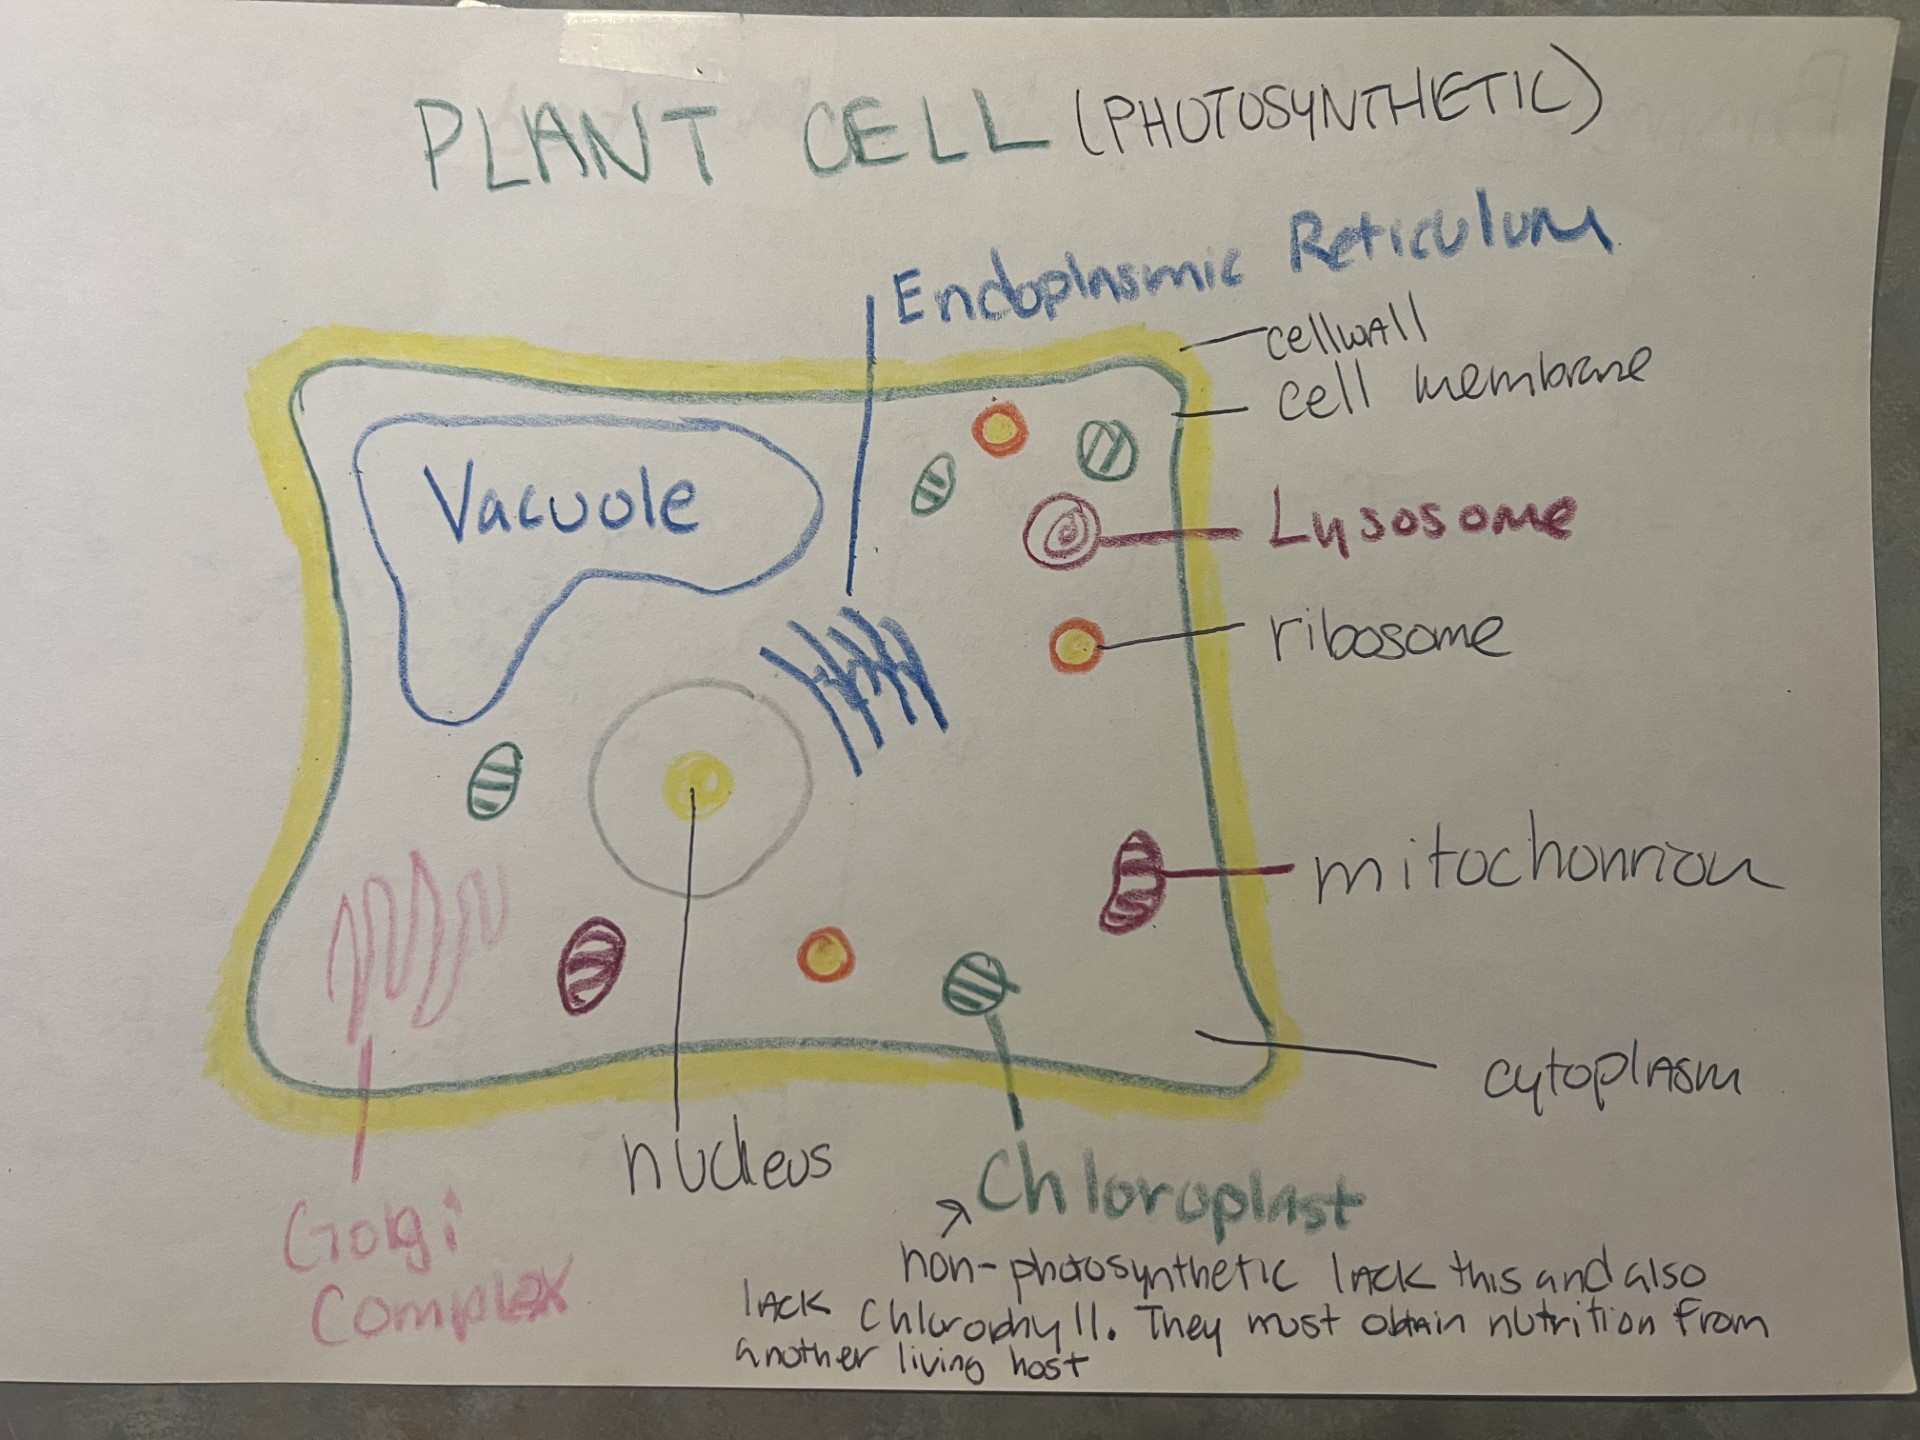 PLANT CELL (PHOTOSYNTHETIC)
Endoplasmic Reticulum
cellwall
cell membrane
Vacuole
Lysosome
ribosome
mitochonrion
cytoplasm
nucleus
Chloroplast
Golgi
Complex
non-photosynthetic lack this and also
lack Chlorophyll. They must obtain nutrition from
another living host